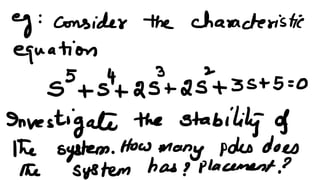 eg: Consider the characteristic
equation
S⁵+S⁴+2S³+2S²+3S+5=0
Investigate the stability of
The system. How many poles does
the system has? Placement?